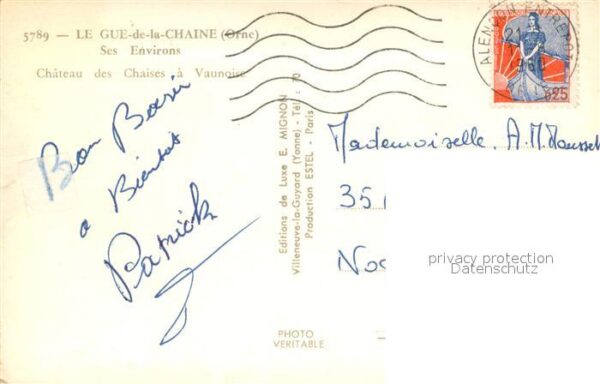 5789 – LE GUE-de-la-CHAINE (Orne)
Ses Environs
Château des Chaises à Vaunoise
Bon Baiser
a Bientot
Patrick
Editions de Luxe E. MIGNON
Villeneuve-la-Guyard (Yonne) - Tél. : 70
Production ESTEL - Paris
PHOTO
VERITABLE
ALENÇON ENTREPOT
21
0,25
Mademoiselle. A.M.
35
privacy protection
Datenschutz